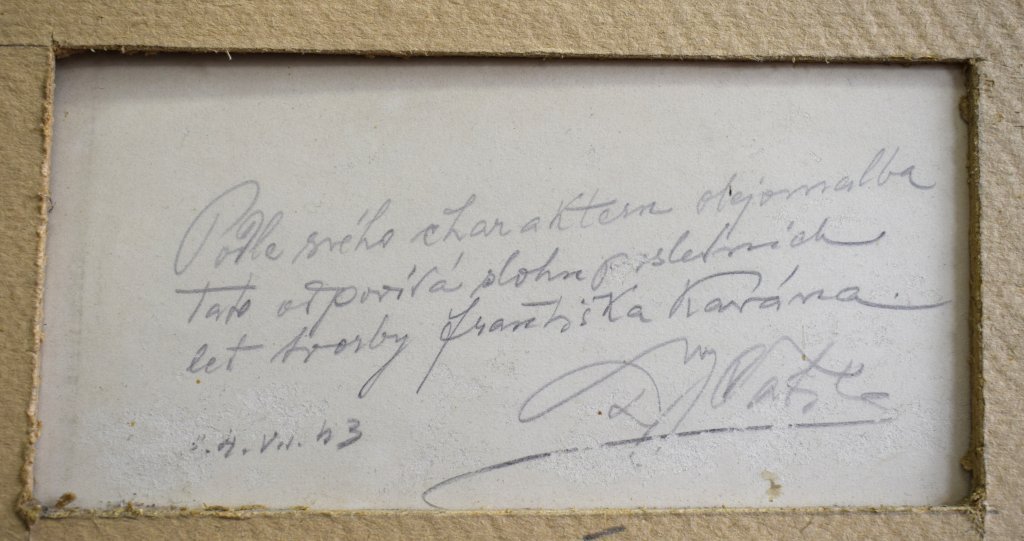 Podle svého charakteru olejomalba
tato odpovídá slohu posledních
let tvorby Františka Kavána.
VII. 43